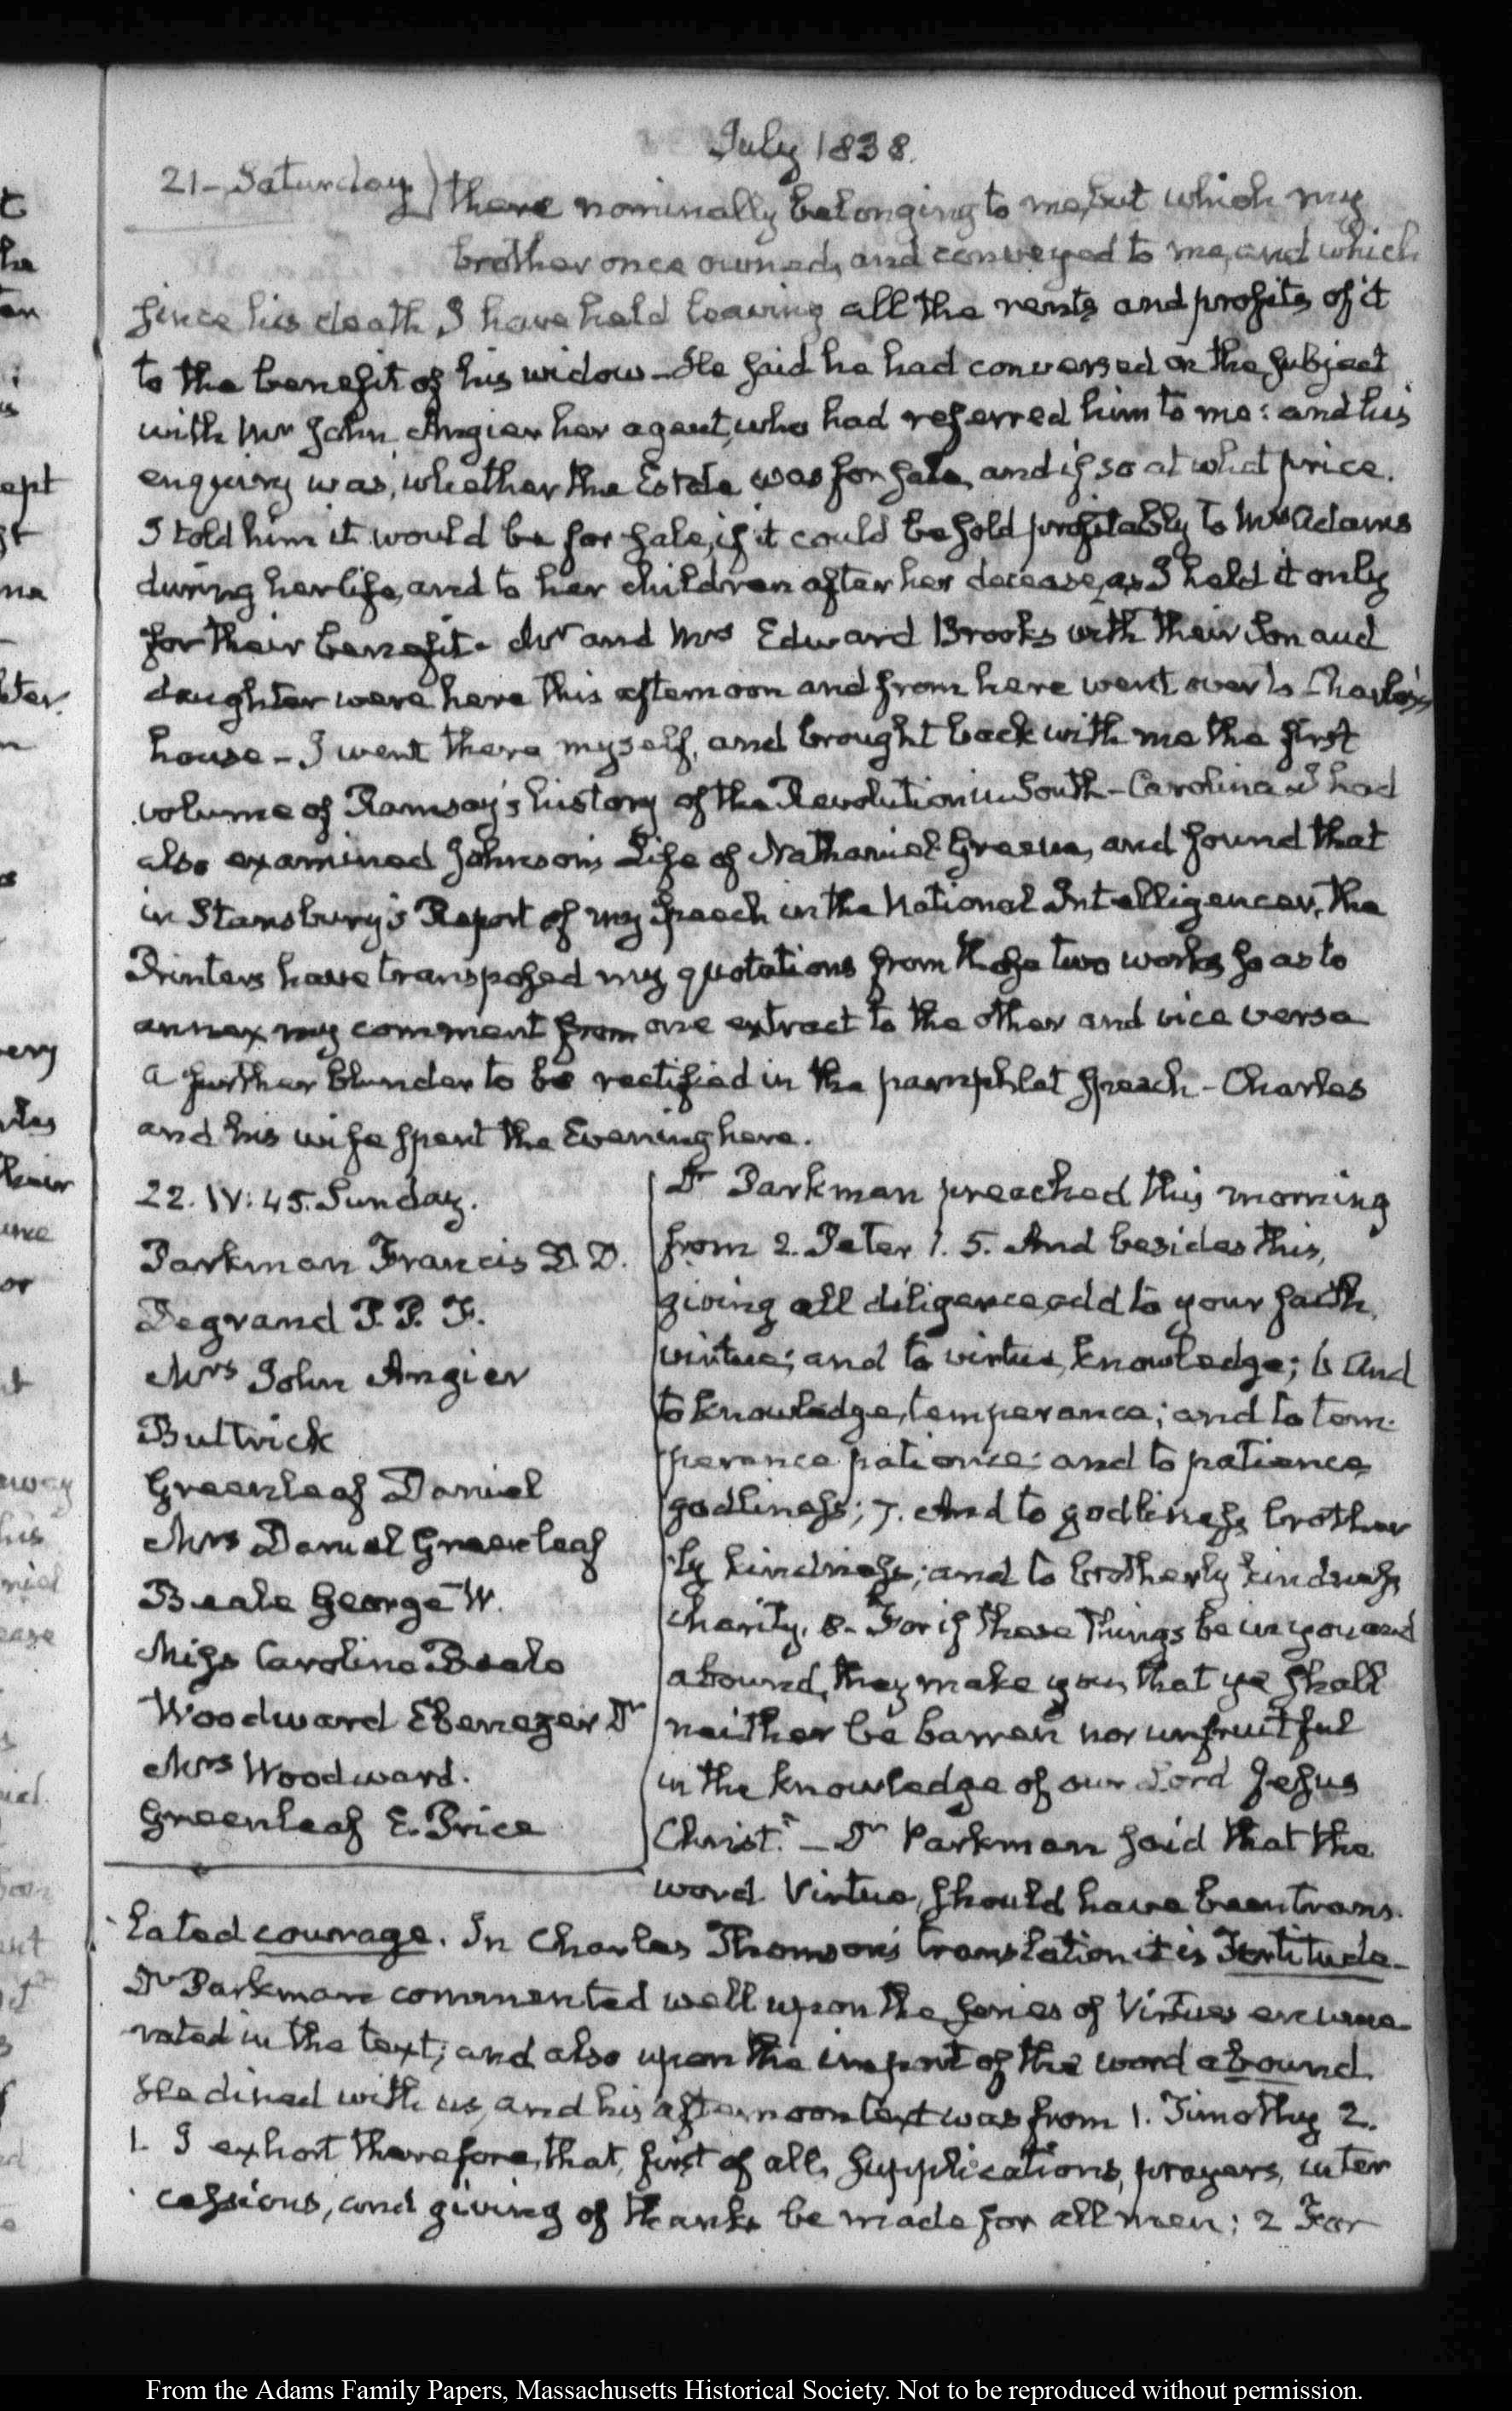 July 1838.
21 – Saturday) there nominally belonging to me, but which my
brother once owned, and conveyed to me, and which
since his death I have held leaving all the rents and profits of it
to the benefit of his widow – He said he had conversed on the subject
with Mr John Angier her agent, who had referred him to me: and his
enquiry was, whether the Estate was for sale, and if so at what price.
I told him it would be for sale, if it could be sold profitably to Mrs Adams
during her life, and to her children after her decease, as I held it only
for their benefit. Mr and Mrs Edward Brooks with their Son and
daughter were here this afternoon and from here went over to Charles's
house – I went there myself, and brought back with me the first
volume of Ramsay's history of the Revolution in South-Carolina I had
also examined Johnson's Life of Nathaniel Greene, and found that
in Stansbury's Report of my Speech in the National Intelligencer, the
Printers have transposed my quotations from those two works so as to
annex my comment from one extract to the other and vice versa
a further blunder to be rectified in the pamphlet speech – Charles
and his wife spent the Evening here.
22. IV: 45. Sunday.
Parkman Francis D.D.
Degrand P. P. F.
Mrs John Angier
Buttrick
Greenleaf Daniel
Mrs Daniel Greenleaf
Beale George W.
Miss Caroline Beale
Woodward Ebenezer Dr
Mrs Woodward.
Greenleaf E. Price
Dr Parkman preached this morning
from 2. Peter 1. 5. And besides this,
giving all diligence, add to your faith,
virtue; and to virtue, knowledge; 6 And
to knowledge, temperance; and to tem-
perance patience; and to patience
godliness; 7. And to godliness brother
ly kindness; and to brotherly kindness
charity. 8. For if these things be in you and
abound, they make you that ye shall
neither be barren nor unfruitful
in the knowledge of our Lord Jesus
Christ." – Dr Parkman said that the
word Virtue, should have been trans-
lated courage. In Charles Thomson's translation it is Fortitude –
Dr Parkman commented well upon the series of Virtues enume-
rated in the text; and also upon the import of the word abound.
He dined with us, and his afternoon text was from 1. Timothy 2.
1. I exhort therefore, that, first of all, supplications, prayers, inter
cessions, and giving of thanks be made for all men; 2 For
From the Adams Family Papers, Massachusetts Historical Society. Not to be reproduced without permission.